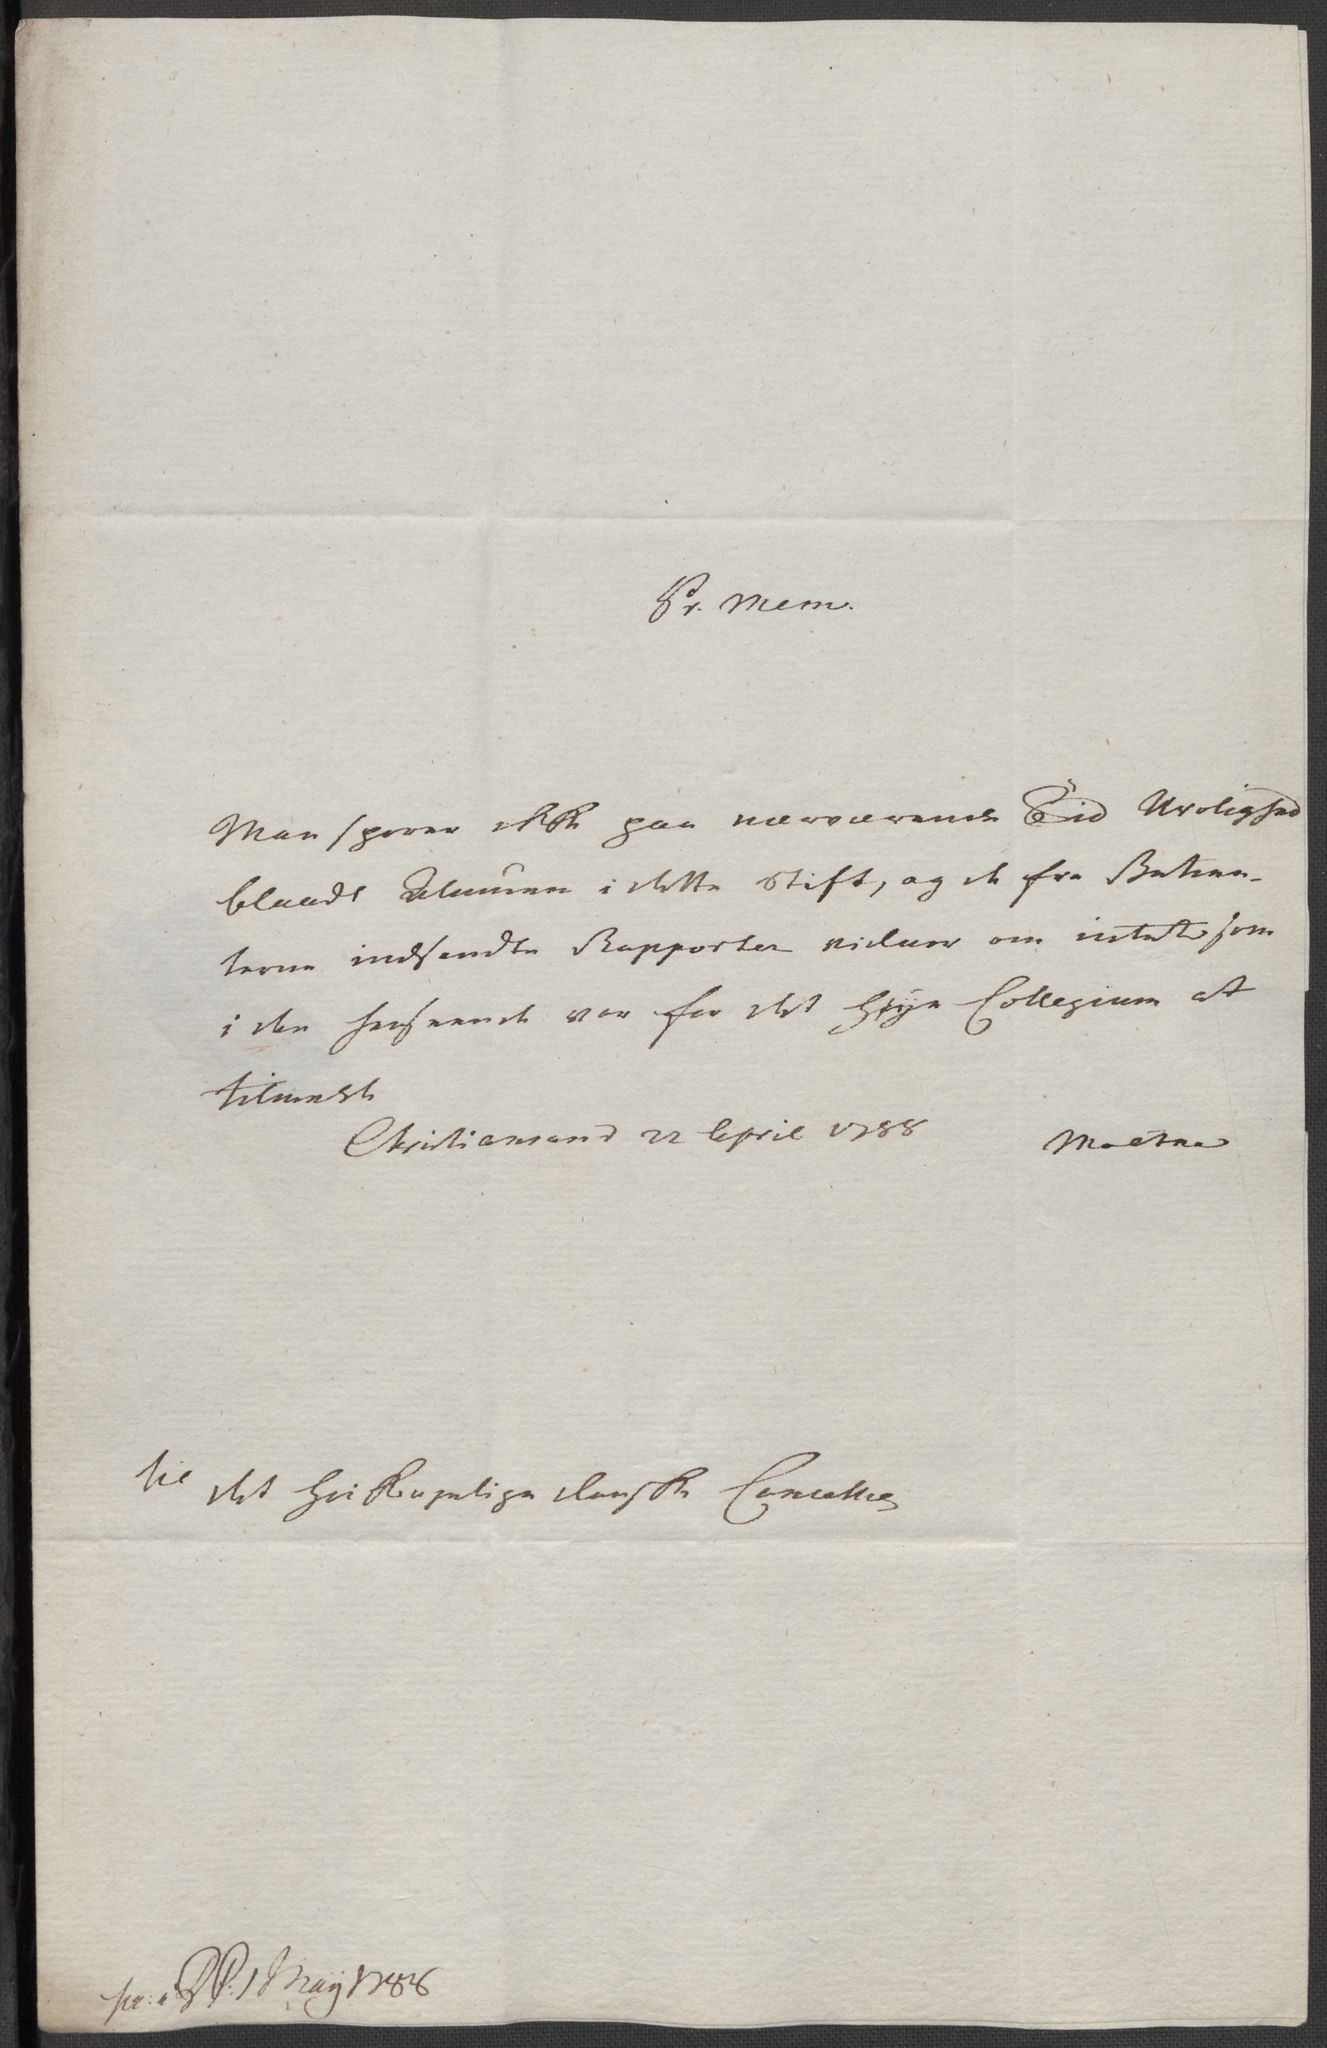 Pr. Mem.
Man sporer ikke paa nærværende Tid Urolighed
blandt Almuen i dette Stift, og de fra Betien-
terne indsendte Rapporter vidner om intet som
i den henseende var for det høye Collegium at
tilmelde
Christiansand 22 April 1788 Moltke
til det Høi Kongelige danske Cancellie
1 Maij 1788